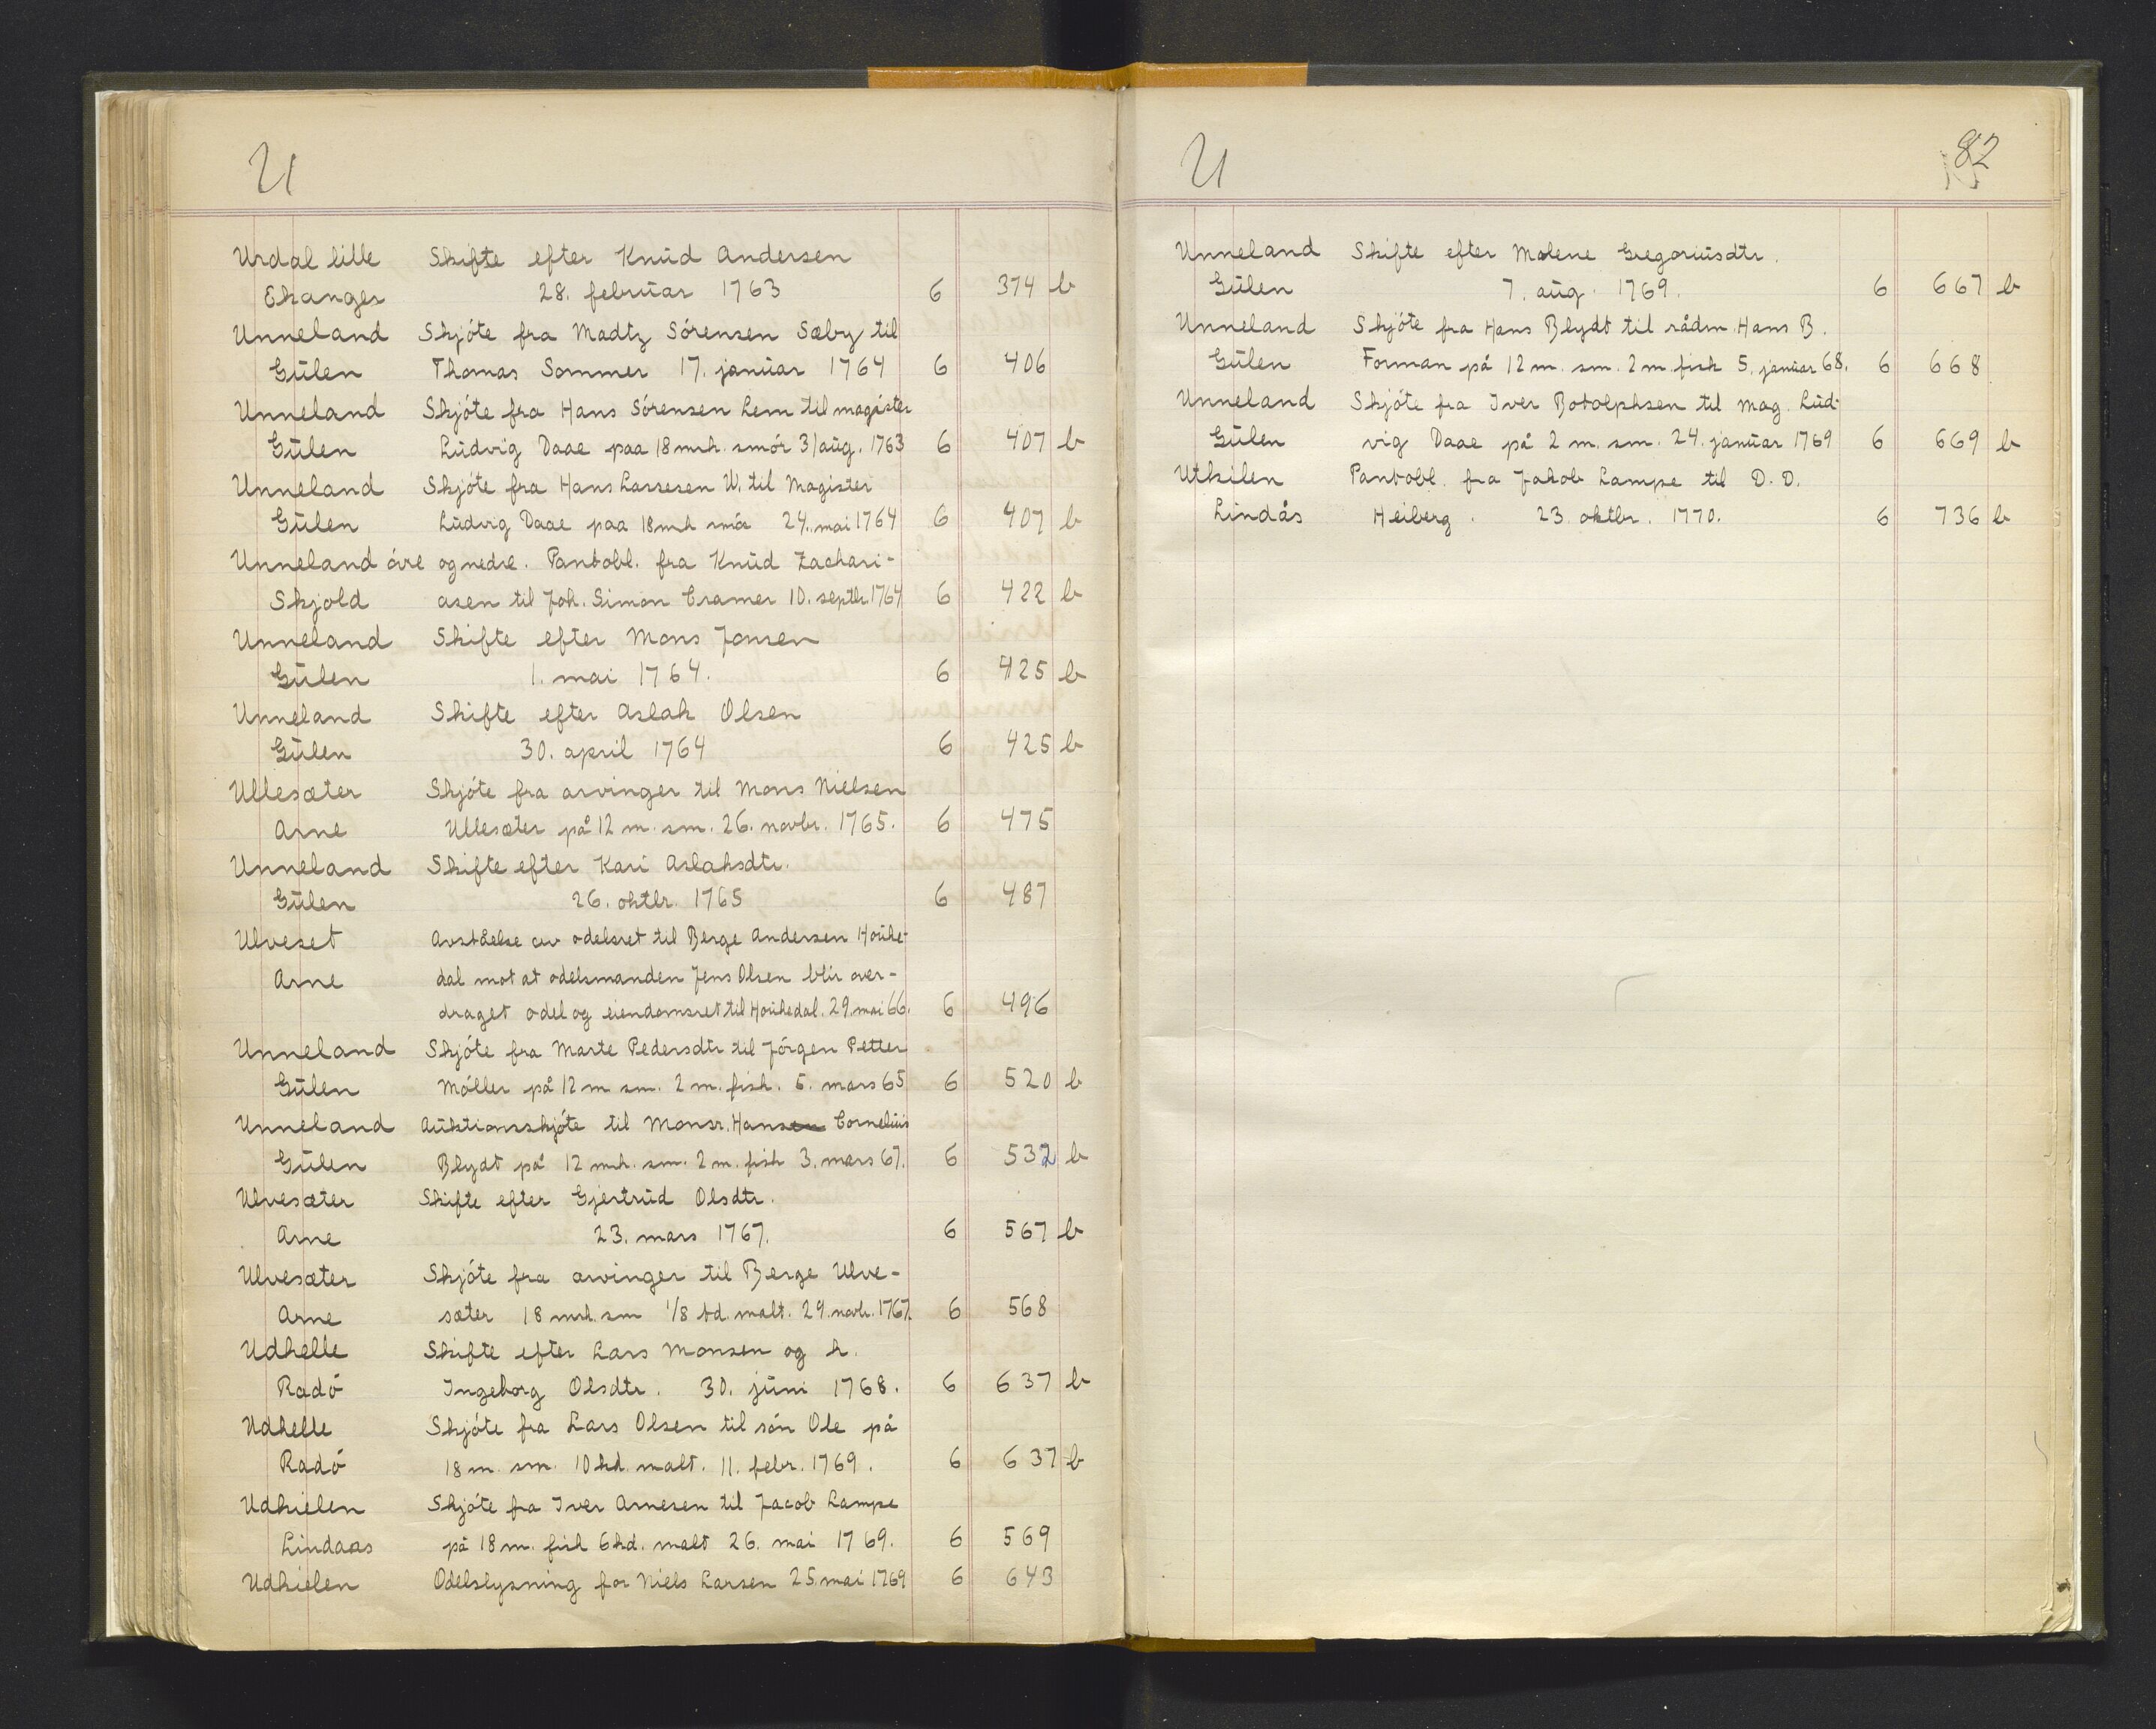 U
Urdal lille Skifte efter Knud Andersen
Ekanger 28. februar 1763 6 374 b
Unneland Skjöte fra Madtz Sörensen Sæby til
Gulen Thomas Sommer 17. januar 1764 6 406
Unneland Skjöte fra Hans Sörensen Lem til magister
Gulen Ludvig Daae paa 18 mrk. smör 31 aug. 1763 6 407 b
Unneland Skjöte fra Hans Larsesen U. til Magister
Gulen Ludvig Daae paa 18 mk smör 24. mai 1764 6 407 b
Unneland övre og nedre. Pantobl. fra Knud Zachari-
Skjold asen til Joh. Simon Cramer 10. septbr. 1764 6 422 b
Unneland Skifte efter Mons Jonsen
Gulen 1. mai 1764. 6 425 b
Unneland Skifte efter Aslak Olsen
Gulen 30. april 1764 6 425 b
Ullesæter Skjöte fra arvinger til Mons Nielsen
Arne Ullesæter på 12 m. sm. 26. novbr. 1765. 6 475
Unneland Skifte efter Kari Aslaksdtr.
Gulen 26. oktbr. 1765 6 487
Ulveset Avståelse av odelsret til Berge Andersen Houke-
Arne dal mot at odelsmanden Jens Olsen blir over-
draget odel og eiendomsret til Houkedal. 29. mai 66. 6 496
Unneland Skjöte fra Marte Pedersdtr til Jörgen Petter
Gulen Möller på 12 m sm. 2 m. fisk. 5. mars 65 6 520 b
Unneland Auktionsskjöte til Monsr. Hansen Cornelius
Gulen Blydt på 12 mrk. sm. 2 m. fisk 3. mars 67. 6 532 b
Ulvesæter Skifte efter Gjertrud Olsdtr.
Arne 23. mars 1767. 6 567 b
Ulvesæter Skjöte fra arvinger til Berge Ulve-
Arne sæter 18 mrk. sm 1/8 td. malt. 29. novbr. 1767. 6 568
Udhelle Skifte efter Lars Monsen og h.
Radö Ingeborg Olsdtr. 30. juni 1768. 6 637 b
Udhelle Skjöte fra Lars Olsen til sön Ole på
Radö 18 m. sm. 10 kd. malt. 11. febr. 1769. 6 637 b
Udkielen Skjöte fra Iver Arnesen til Jacob Lampe
Lindaas på 18 m. fisk 6 kd. malt 26. mai 1769. 6 569
Udkielen Odelslysning for Niels Larsen 25. mai 1769 6 643
U 82
Unneland Skifte efter Malene Gregoriusdtr.
Gulen 7. aug. 1769. 6 667 b
Unneland Skjöte fra Hans Blydt til rådm. Hans B.
Gulen Forman på 12 m. sm. 2 m. fisk 5. januar 68. 6 668
Unneland Skjöte fra Iver Botolphsen til Mag. Lud-
Gulen vig Daae på 2 m. sm. 24. januar 1769 6 669 b
Utkilen Pantobl. fra Jakob Lampe til D. D.
Lindås Heiberg. 23. oktbr. 1770. 6 736 b